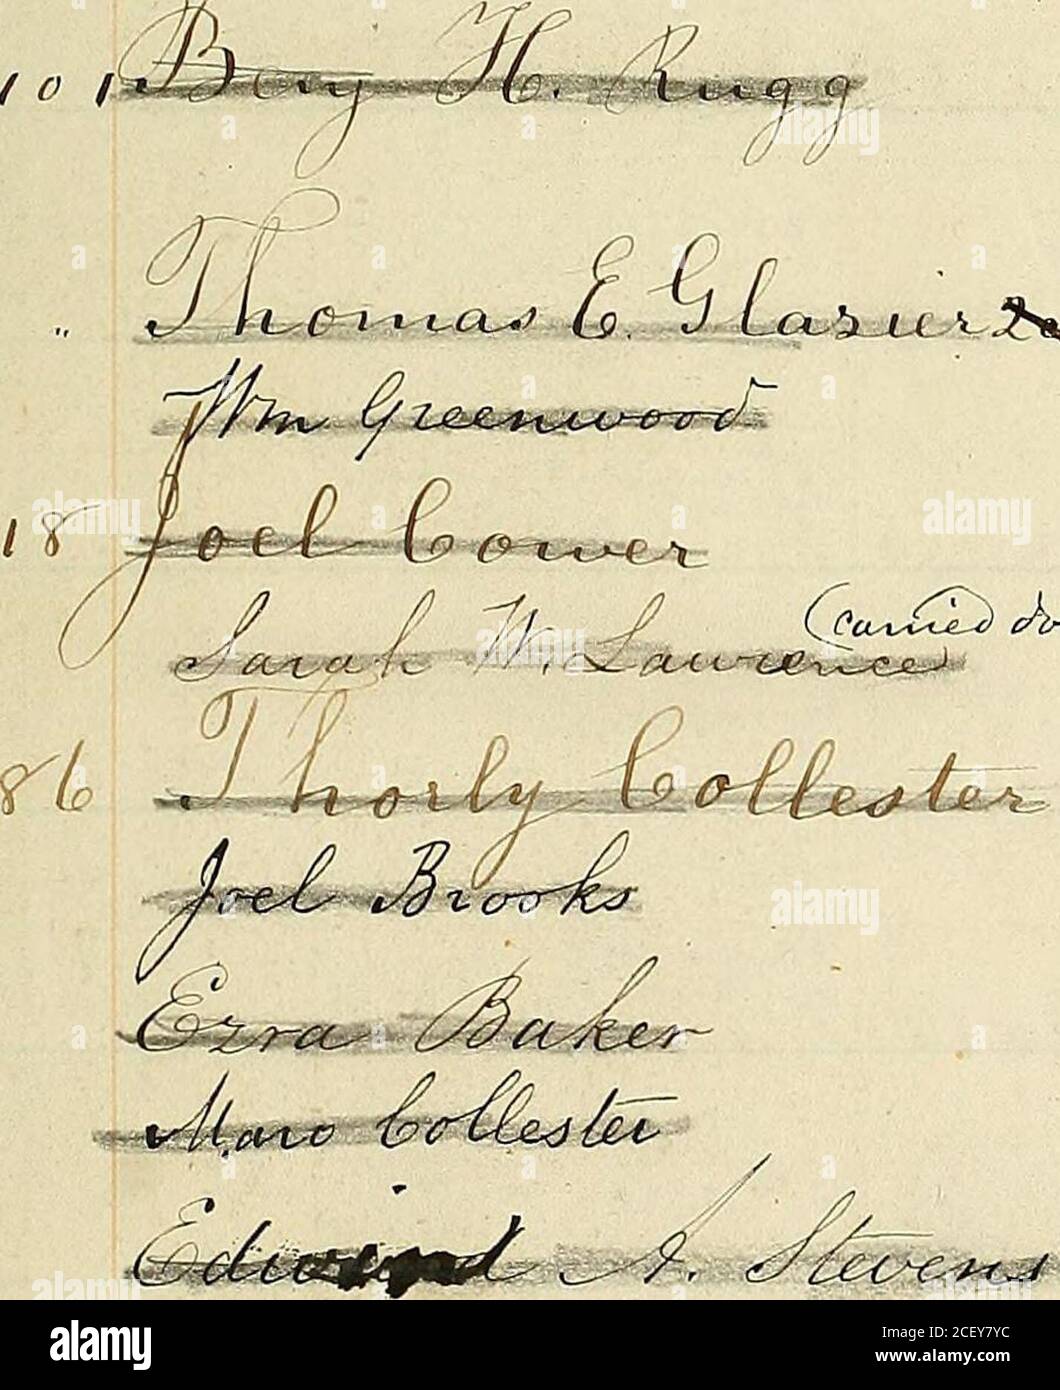 101 Benj H. Rugg
" Thomas E. Glazier
Wm Greenwood
18 Joel Cower
(carried do
Sarah W. Lawrence
86 Thorly Collester
Joel Brooks
Ezra Baker
Maro Collester
Edwind A. Stevens
alamy
Image ID: 2CEY7YC
www.alamy.com